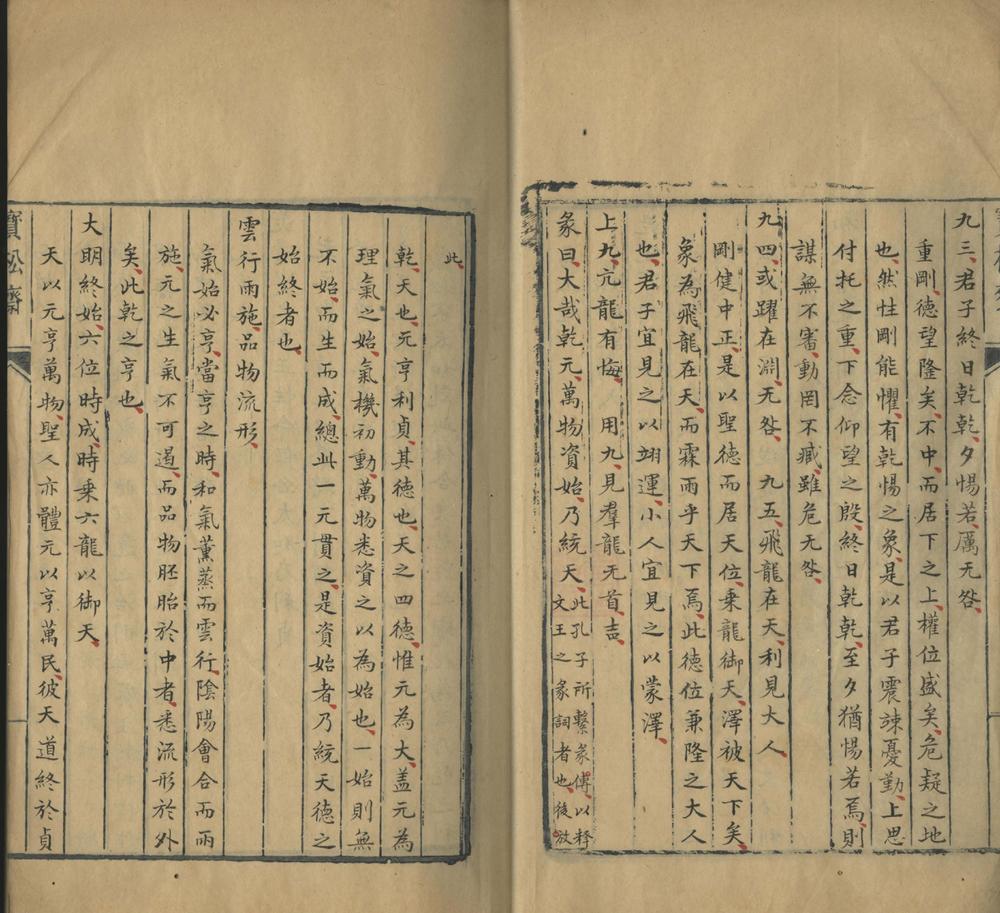 九三君子終日乾乾夕惕若厲无咎
重剛德望隆矣不中而居下之上權位盛矣危疑之地
也然性剛能懼有乾惕之象是以君子震竦憂勤上思
付托之重下念仰望之殷終日乾乾至夕猶惕若焉則
謀無不審動罔不臧雖危无咎
九四或躍在淵无咎 九五飛龍在天利見大人
剛健中正是以聖德而居天位乘龍御天澤被天下矣
象為飛龍在天而霖雨乎天下焉此德位兼隆之大人
也君子宜見之以翊運小人宜見之以蒙澤
上九亢龍有悔 用九見羣龍无首吉
彖曰大哉乾元萬物資始乃統天此孔子所繫彖傳以释
文王之彖詞者也後倣
此
乾天也元亨利貞其德也天之四德惟元為大盖元為
理氣之始氣機初動萬物悉資之以為始也一始則無
不始而生而成總此一元貫之是資始者乃統天德之
始終者也
雲行雨施品物流形
氣始必亨當亨之時和氣薰蒸而雲行陰陽會合而雨
施元之生氣不可遏而品物胚胎於中者悉流形於外
矣此乾之亨也
大明終始六位時成時乘六龍以御天
天以元亨萬物聖人亦體元以亨萬民彼天道終於貞
寶松齋